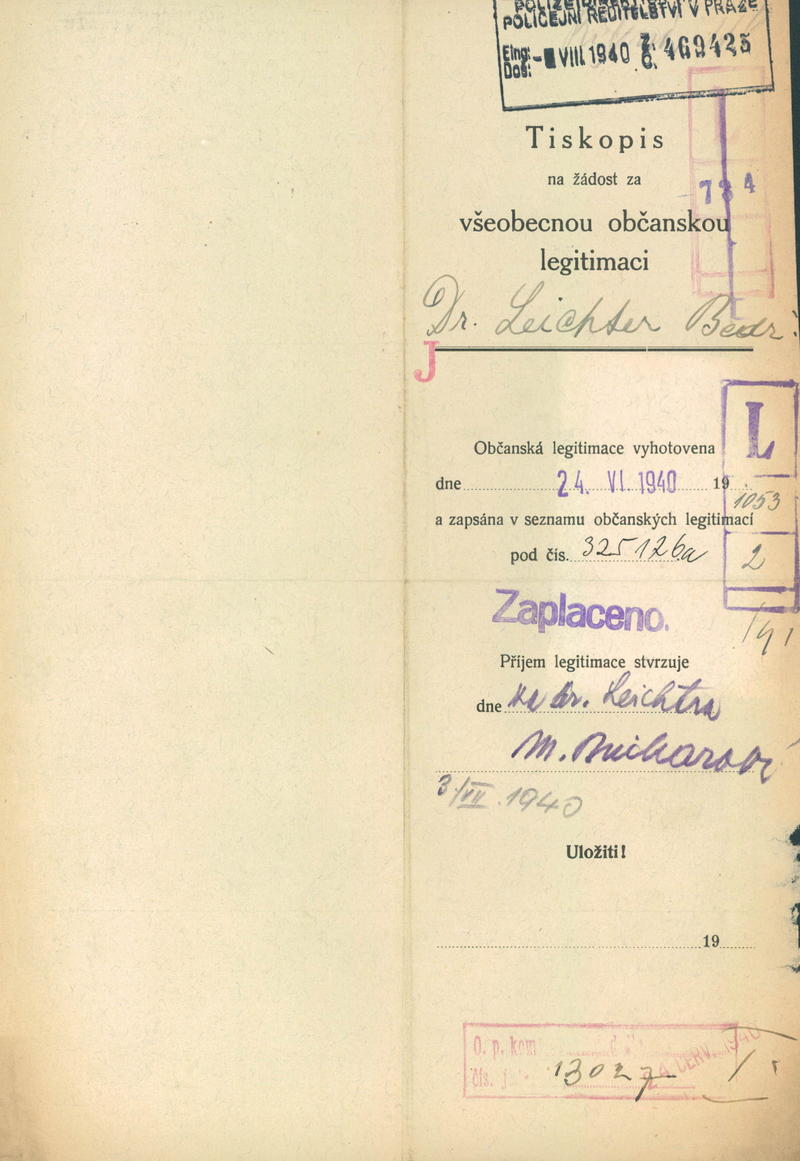 POLICEJNÍ ŘEDITELSTVÍ V PRAZE
Eing: Doš: VIII. 1940 Z: Č. 469425
Tiskopis
na žádost za
734
všeobecnou občanskou
legitimaci
Dr. Leichter Bedř.
J
L
Občanská legitimace vyhotovena
dne 24. VI. 1940 19
1053
a zapsána v seznamu občanských legitimací
pod čís. 325126a
2
Zaplaceno.
Příjem legitimace stvrzuje
dne dr. Leichtra
M.
3/VII. 1940
Uložiti!
19
O. p. kom
čís. j. 13027
ČERV. 1940